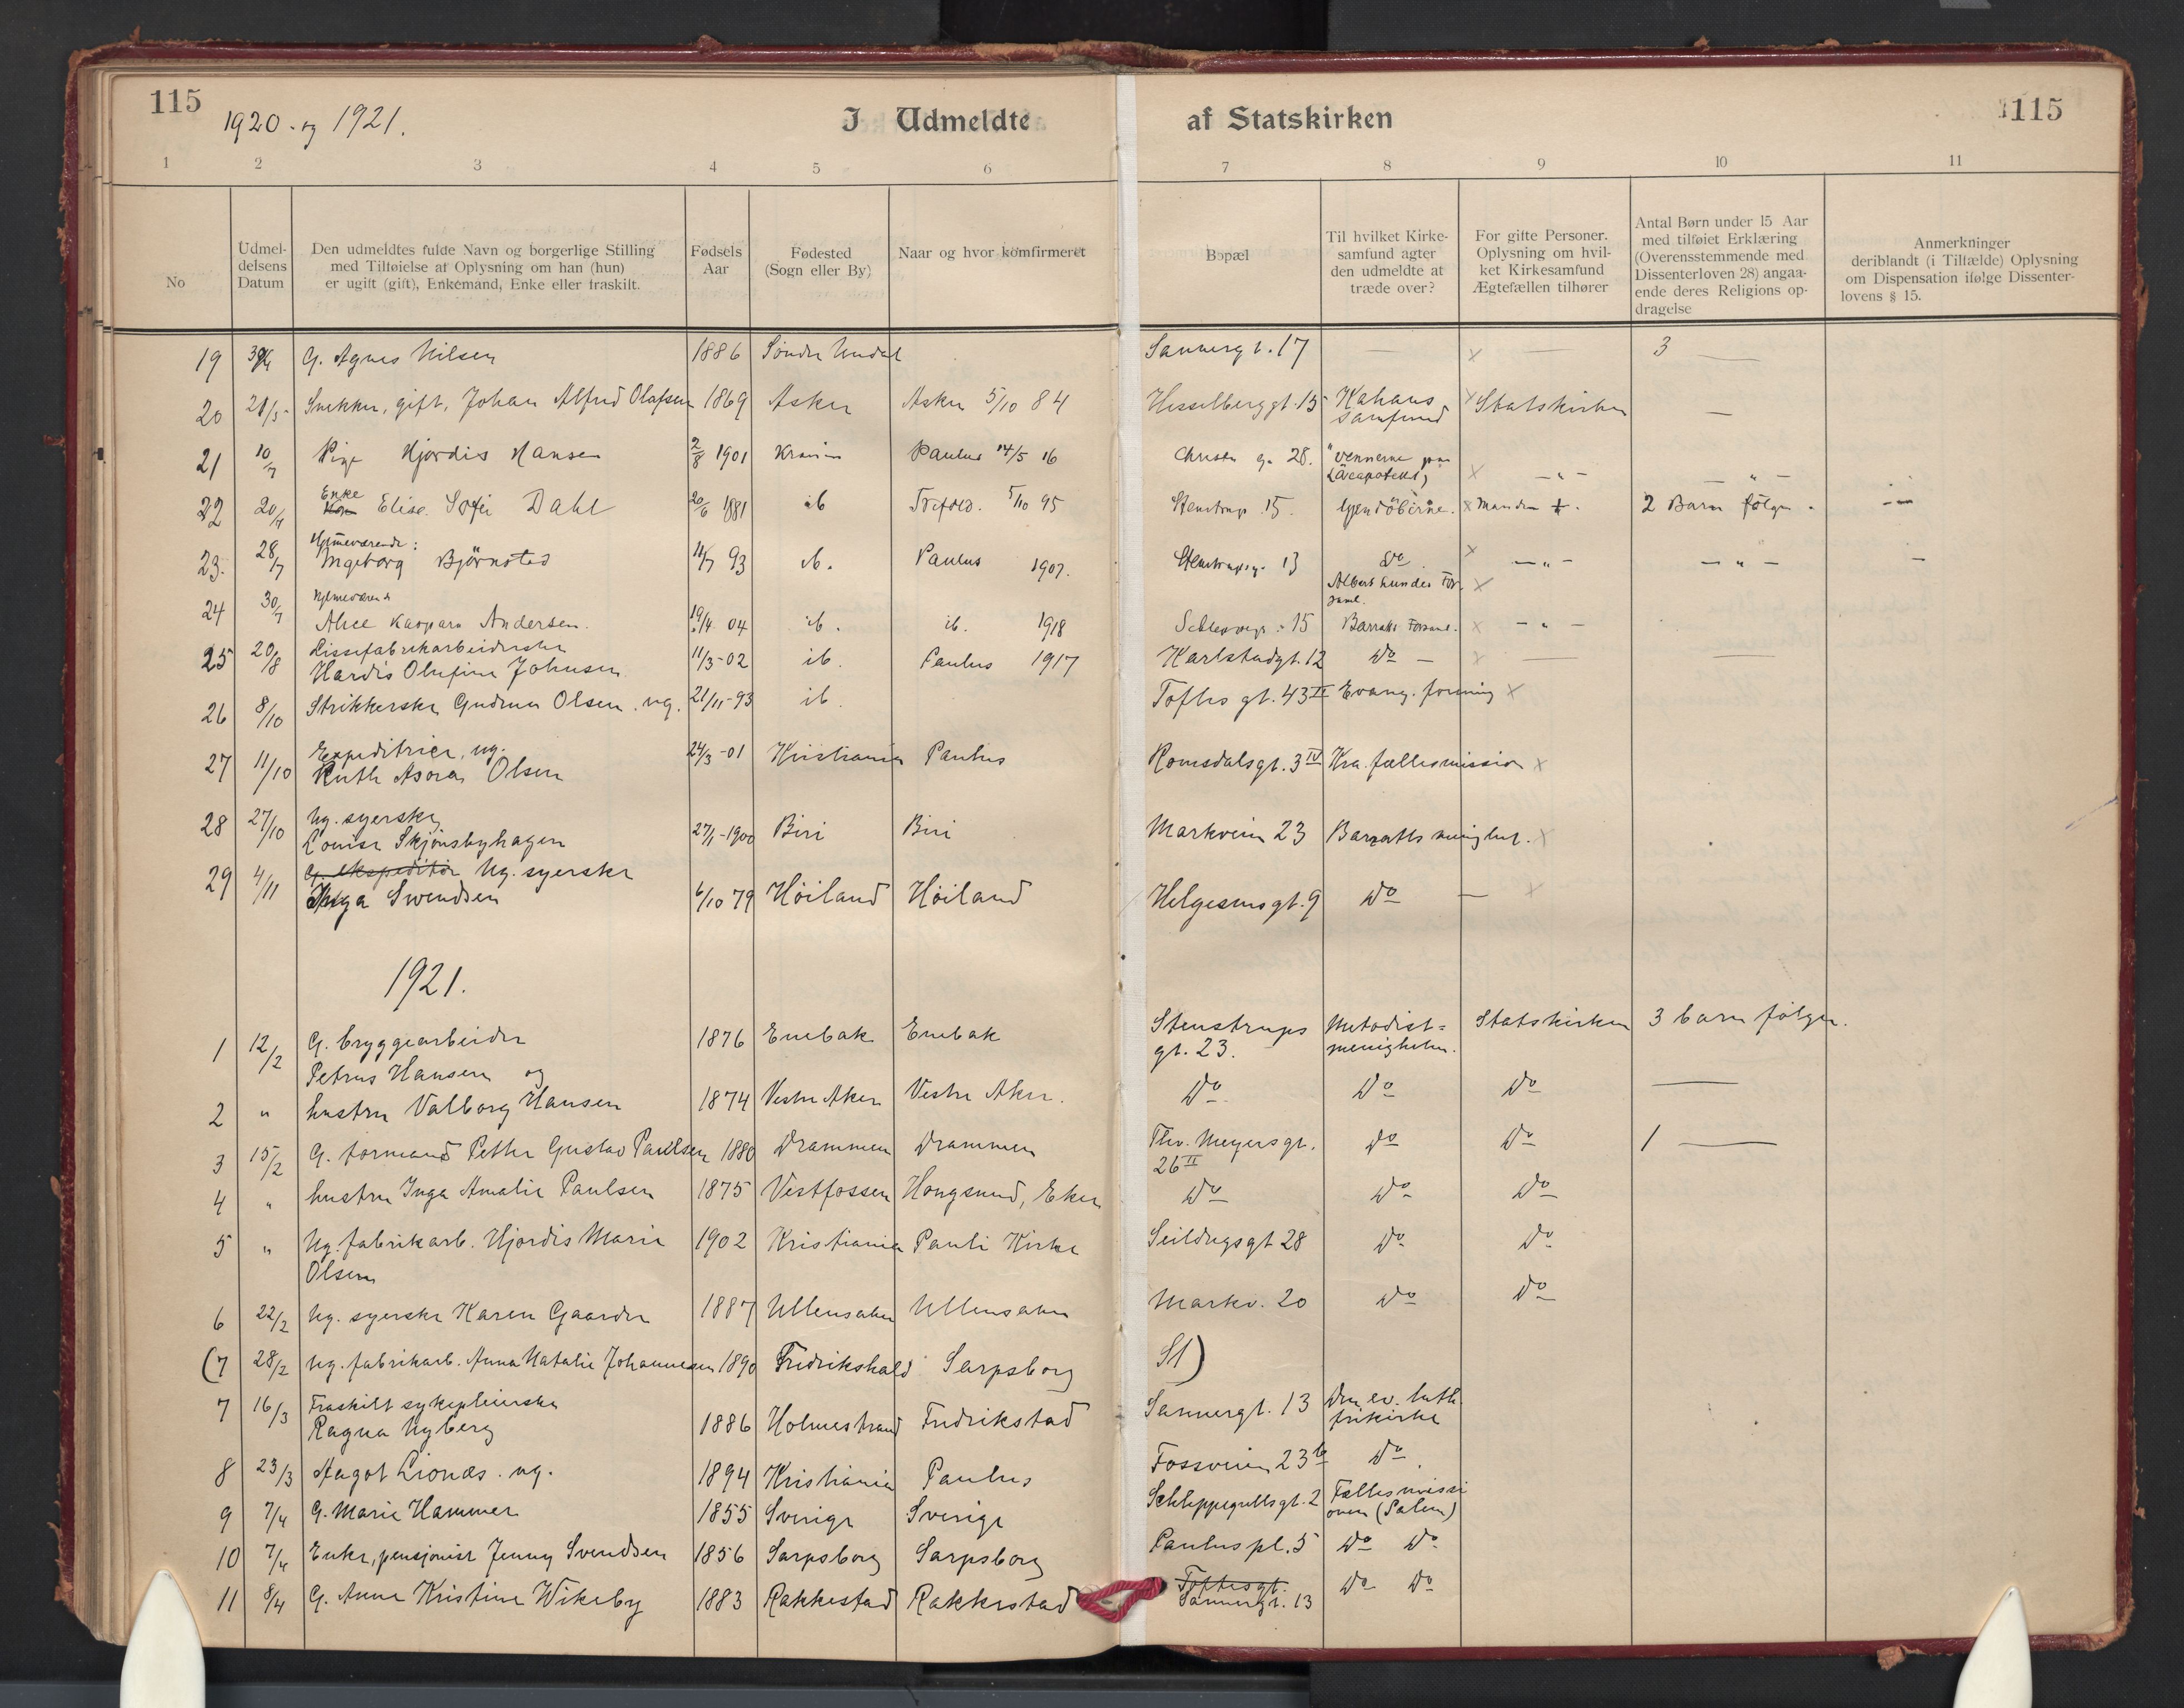 115
1920 - og 1921.
I Udmeldte
af Statskirken
115
1 2 3 4 5 6 7 8 9 10 11
No
Udmel-
delsens
Datum
Den udmeldtes fulde Navn og borgerlige Stilling
med Tilføielse af Oplysning om han (hun)
er ugift (gift), Enkemand, Enke eller fraskilt.
Fødsels
Aar
Fødested
(Sogn eller By)
Naar og hvor komfirmeret
Bopæl
Til hvilket Kirke-
samfund agter
den udmeldte at
træde over?
For gifte Personer.
Oplysning om hvil-
ket Kirkesamfund
Ægtefællen tilhører
Antal Børn under 15 Aar
med tilføiet Erklæring
(Overensstemmende med
Dissenterloven 28) angaa-
ende deres Religions op-
dragelse
Anmerkninger
deriblandt (i Tilfælde) Oplysning
om Dispensation ifølge Dissenter-
lovens § 15.
19 G. Agnes Nilsen 1886 Søndre Undal Sannergt. 17 — x — 3 —
20 Snekker, gift, Johan Alfred Olafsen 1869 Asker Asker 5/10 84 Hesselberggt. 15 samfund x Statskirken —
21 10/7 Pige Hjørdis Hansen 2/8 1901 Kr.ania Paulus 14/5 16 28. "Vennerne paa x -"- -"-
22 20/7 Enke Elise Sofie Dahl 20/6 1881 ib 5/10 95 Stenstrups 15. Gjendöberne. x Manden +. 2 Barn følger.
23. 28/7 Hjemmeværende:
Ingeborg Björnstad 11/7 93 ib. Paulus 1907. Stenstrupsg. 13 Do x -"- -"- -
24 30/7 Hjemmeværende
Alice Kaspara Andersen. 19/4 04 ib. ib. 1918 15 Albert Lundes For-
saml.
Barratts Forsaml. x -"-
25 20/8 Lissefabrikarbeiderske
Hardis Olufine Johnsen 11/3-02 ib. Paulus 1917 Karlstadgt. 12 Do — x — —
26 8/10 Strikkerske Gudrun Olsen. ug. 21/11-93 ib. Toftes gt. 43 II Evang. forening x
27 11/10 Expeditrice, ug.
Ruth Asora Olsen 24/3-01 Kristiania Paulus Romsdalsgt. 3 IV Kra. fællesmission x
28 27/10 Ug. syerske
Louise Skjønsbyhagen 27/1-1900 Biri Biri Markveien 23 Barratts menighet. x
29 4/11 G. ekspeditør Ug. syerske
Inga Svendsen 6/10 79 Høiland Høiland Helgesensgt. 9 Do — x
1921.
1 12/2 G. bryggearbeider
Petrus Hansen og 1876 Enebak Enebak Stenstrups
gt. 23. Metodist=
menigheten. Statskirken 3 barn følger.
2 " hustru Valborg Hansen 1874 Vestre Aker Vestre Aker. Do Do Do —
3 15/2 G. formand Petter Gustav Paulsen 1880 Drammen Drammen Thv. Meyersgt.
26 II Do Do 1 —
4 " hustru Inga Amalie Paulsen 1875 Vestfossen Hougsund, Eker Do Do Do
5 " Ug. fabrikarb. Hjørdis Marie
Olsen 1902 Kristiania Pauli Kirke Seildugsgt 28 Do Do
6 22/2 Ug. syerske Karen Gaarder 1887 Ullensaker Ullensaker Markv. 20 Do Do
(7 28/2 Ug. fabrikarb. Anna Natalie Johannesen 1890 Fredrikshald Sarpsborg Sl)
7 16/3 Fraskilt sykepleierske
Ragna Nyberg 1886 Holmestrand Fredrikstad Sannergt. 13 Den ev. luth.
frikirke
8 23/3 Aagot Lionæs. ug. 1894 Kristiania Paulus Fossveien 23 b Do.
9 7/4 G. Marie Hammer 1855 Sverige Sverige Schleppegrellsgt. 2 Fællesmissi
onen (Salem)
10 7/4 Enke, pensjonist Jenny Svendsen 1856 Sarpsborg Sarpsborg Paulus pl. 5 Do Do
11 8/4 G. Anna Kristine Wikeby 1883 Rakkestad Rakkestad Toftesgt.
Sannergt. 13 Do Do